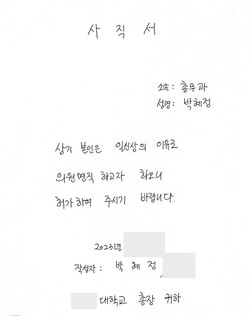 사직서
소속: 총무과
성명: 박혜정
상기 본인은 일신상의 이유로
의원면직 하고자 하오니
허가하여 주시기 바랍니다.
2023년
작성자: 박혜정
대학교 총장 귀하